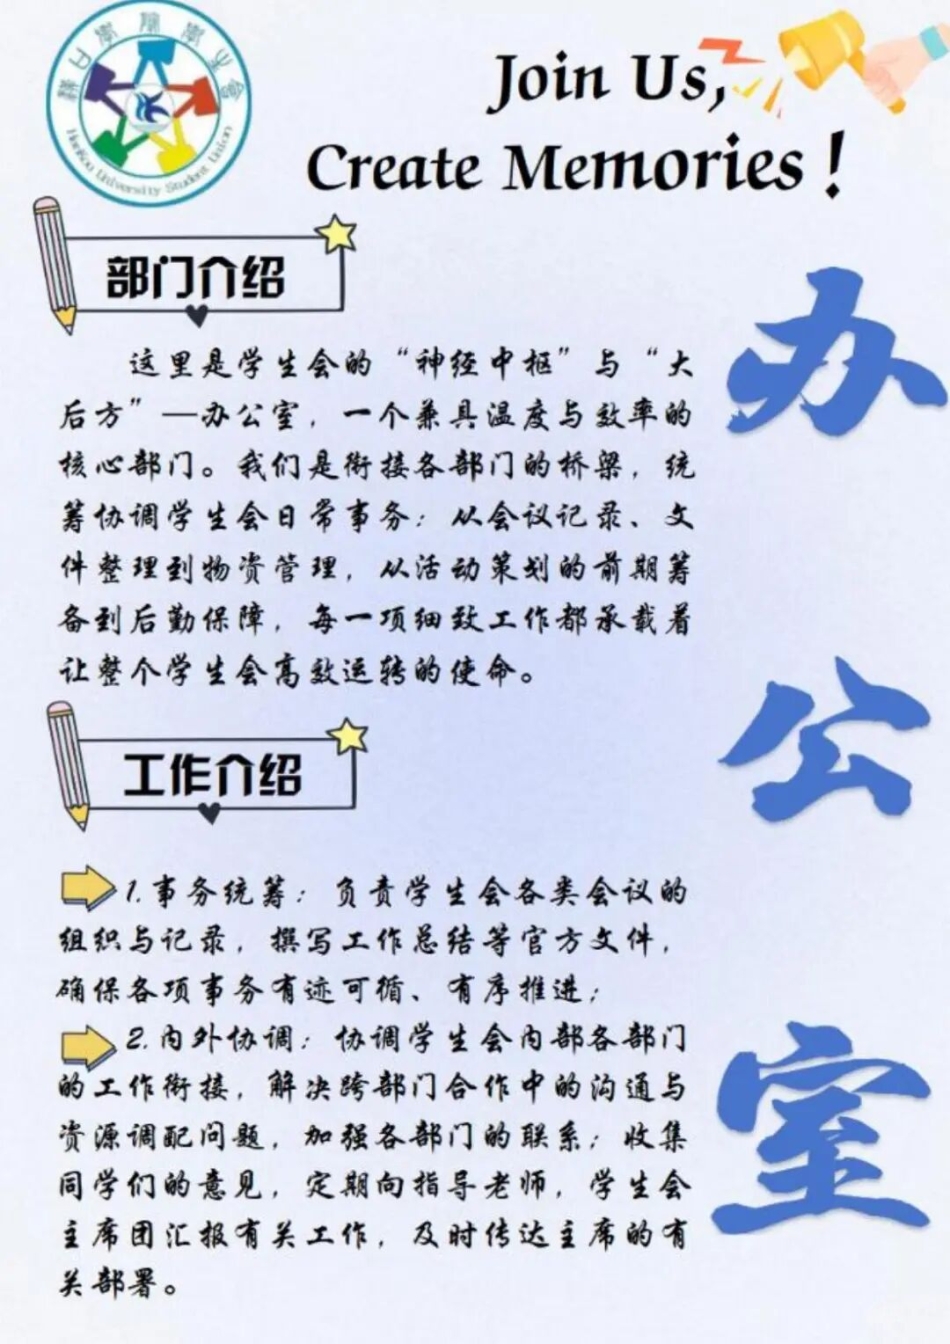 漢口學院學生會
HanKou University Student Union
Join Us,
Create Memories!
部门介绍
这里是学生会的“神经中枢”与“大
后方”—办公室，一个兼具温度与效率的
核心部门。我们是衔接各部门的桥梁，统
筹协调学生会日常事务：从会议记录、文
件整理到物资管理，从活动策划的前期筹
备到后勤保障，每一项细致工作都承载着
让整个学生会高效运转的使命。
工作介绍
1.事务统筹：负责学生会各类会议的
组织与记录，撰写工作总结等官方文件，
确保各项事务有迹可循、有序推进；
2.内外协调：协调学生会内部各部门
的工作衔接，解决跨部门合作中的沟通与
资源调配问题，加强各部门的联系；收集
同学们的意见，定期向指导老师，学生会
主席团汇报有关工作，及时传达主席的有
关部署。
办
公
室